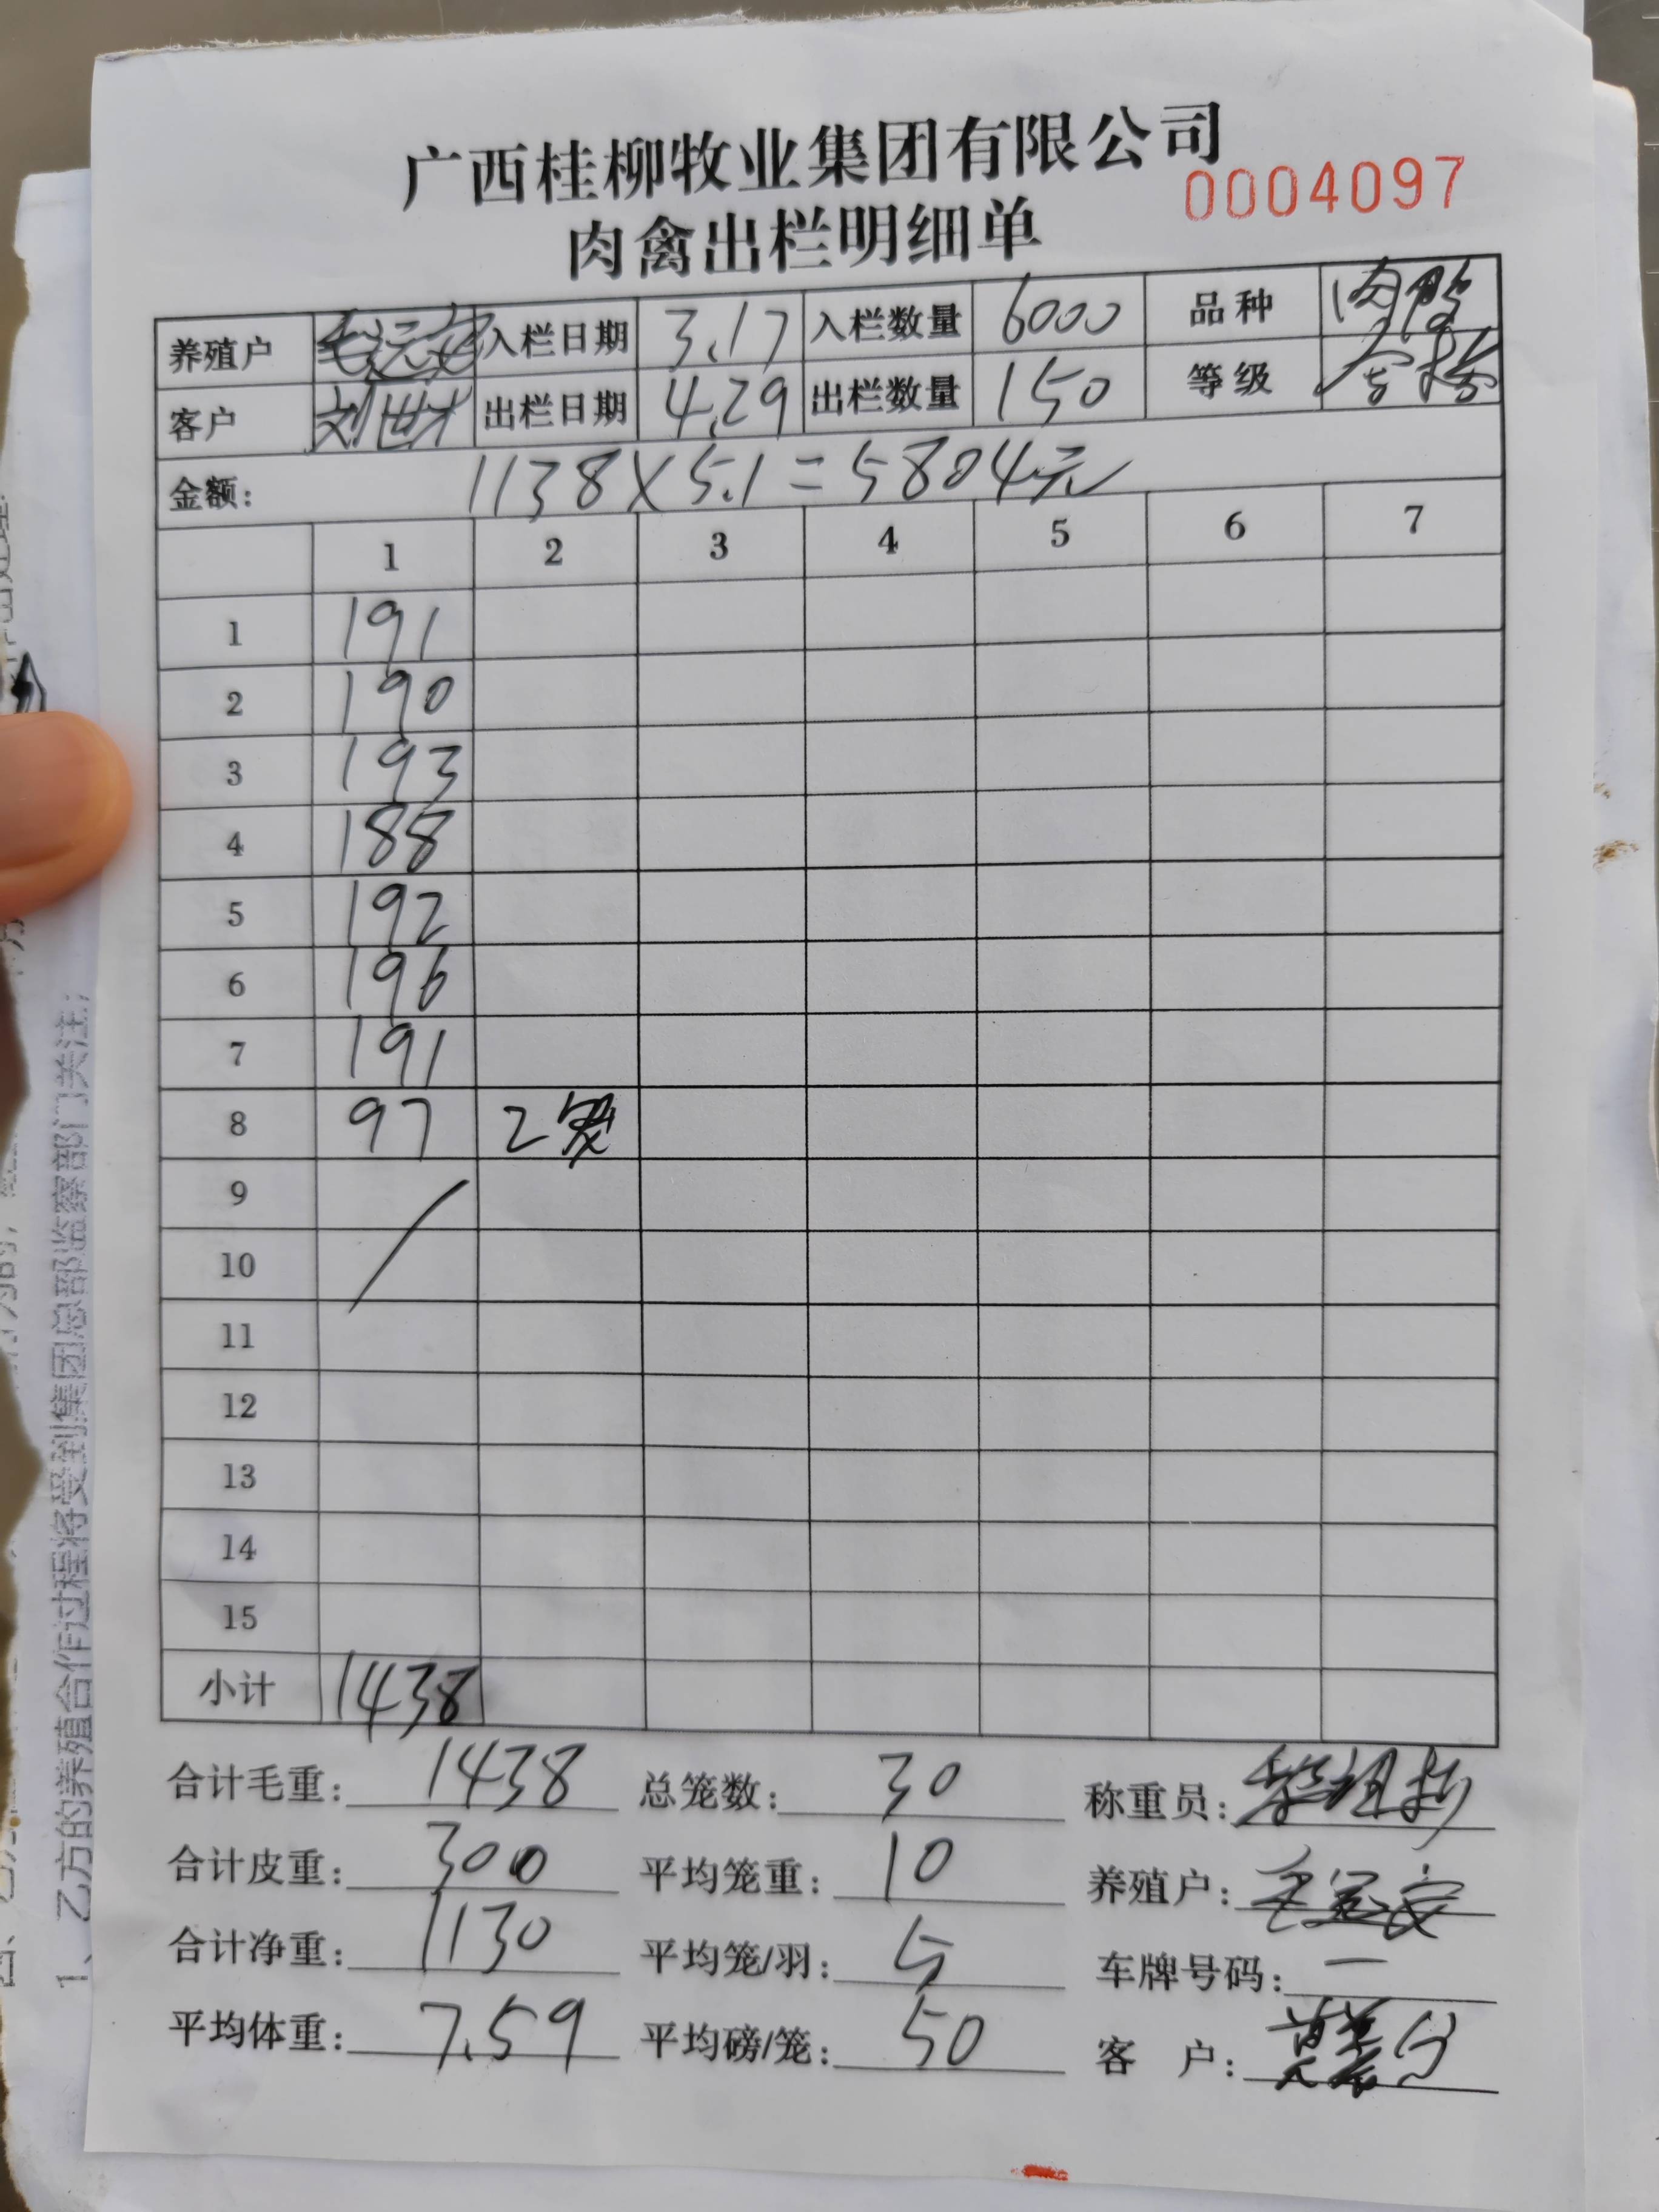 广西桂柳牧业集团有限公司
0004097
肉禽出栏明细单
养殖户 入栏日期 3.17 入栏数量 6000 品种 肉鸭
客户 刘世才 出栏日期 4.29 出栏数量 150 等级 合格
金额: 1138X5.1=5804元
1 2 3 4 5 6 7
1 191
2 190
3 193
4 188
5 192
6 196
7 191
8 97 2笼
9
10
11
12
13
14
15
小计 1438
合计毛重: 1438 总笼数: 30 称重员:
合计皮重: 300 平均笼重: 10 养殖户:
合计净重: 1130 平均笼/羽: 5 车牌号码: 一
平均体重: 7.59 平均磅/笼: 50 客 户:
1、乙方的养殖合作过程将受到集团总部监察部门关注;